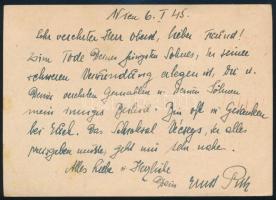 Wien 6. I 45.
Sehr verehrter Herr Oberst, lieber Freund!
Zum Tode Deines jüngsten Sohnes, der seiner
schweren Verwundung erlegen ist, Dir u.
Deiner verehrten Gemahlin u. Deinen Söhnen
mein inniges Beileid. Bin oft in Gedanken
bei Euch. Das Schicksal, der alles
preisgeben mußte, geht mir sehr nahe.
Alles Liebe u. Herzliche
Dein Ernst